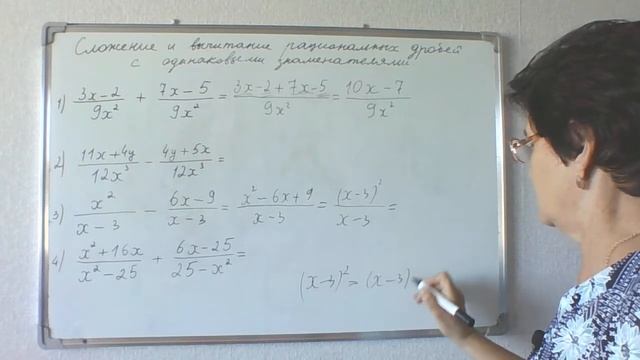 Сложение и вычитание рациональных дробей
с одинаковыми знаменателями
1) (3x-2)/(9x²) + (7x-5)/(9x²) = (3x-2+7x-5)/(9x²) = (10x-7)/(9x²)
2) (11x+4y)/(12x³) - (4y+5x)/(12x³) =
3) x²/(x-3) - (6x-9)/(x-3) = (x²-6x+9)/(x-3) = (x-3)²/(x-3) =
4) (x²+16x)/(x²-25) + (6x-25)/(25-x²) =
(x-3)² = (x-3)